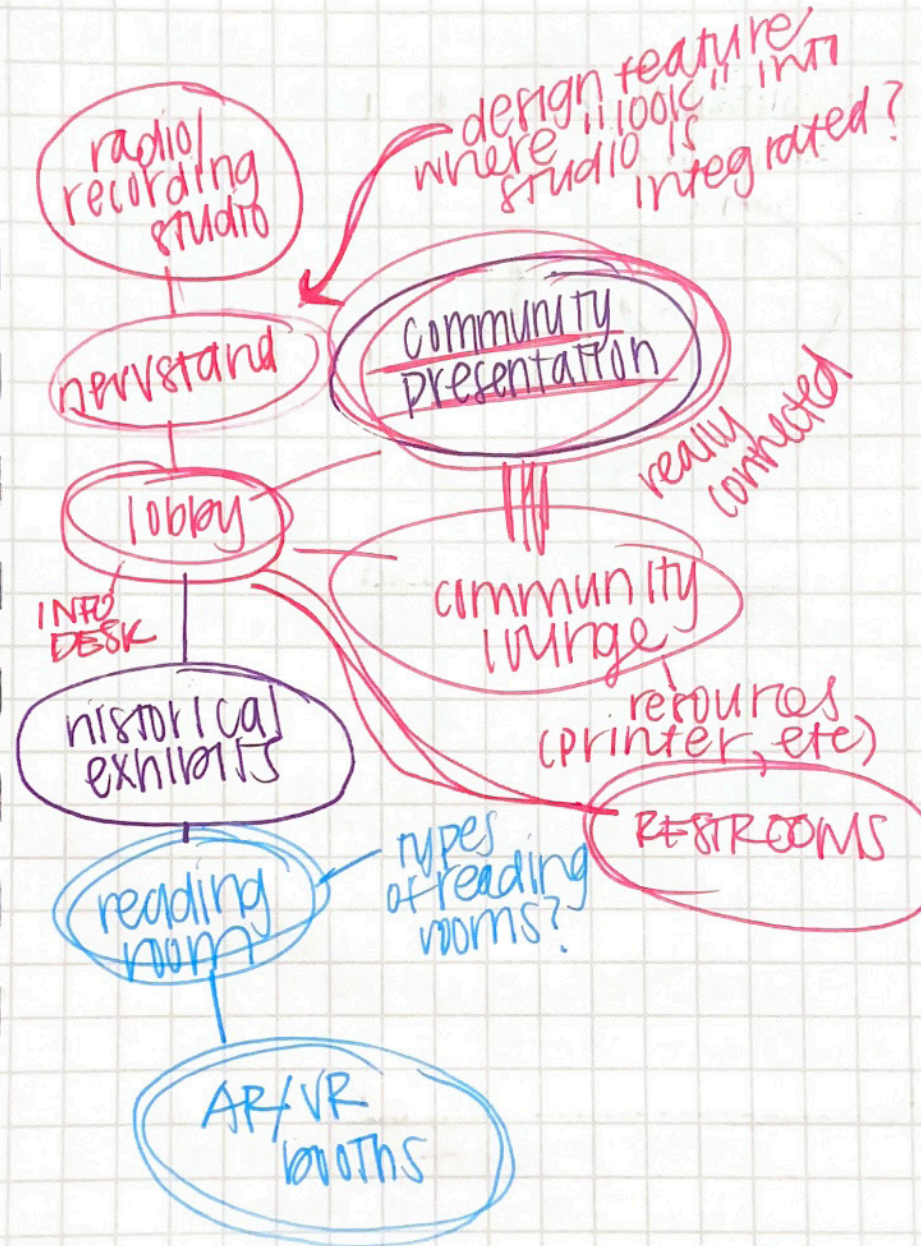 radio/
recording
studio
design feature/
where "look" into
studio is
integrated?
newsstand
community
presentation
really
connected
lobby
INFO
DESK
community
lounge
resources
(printer, etc)
historical
exhibits
RESTROOMS
reading
room
types
of reading
rooms?
AR/VR
booths